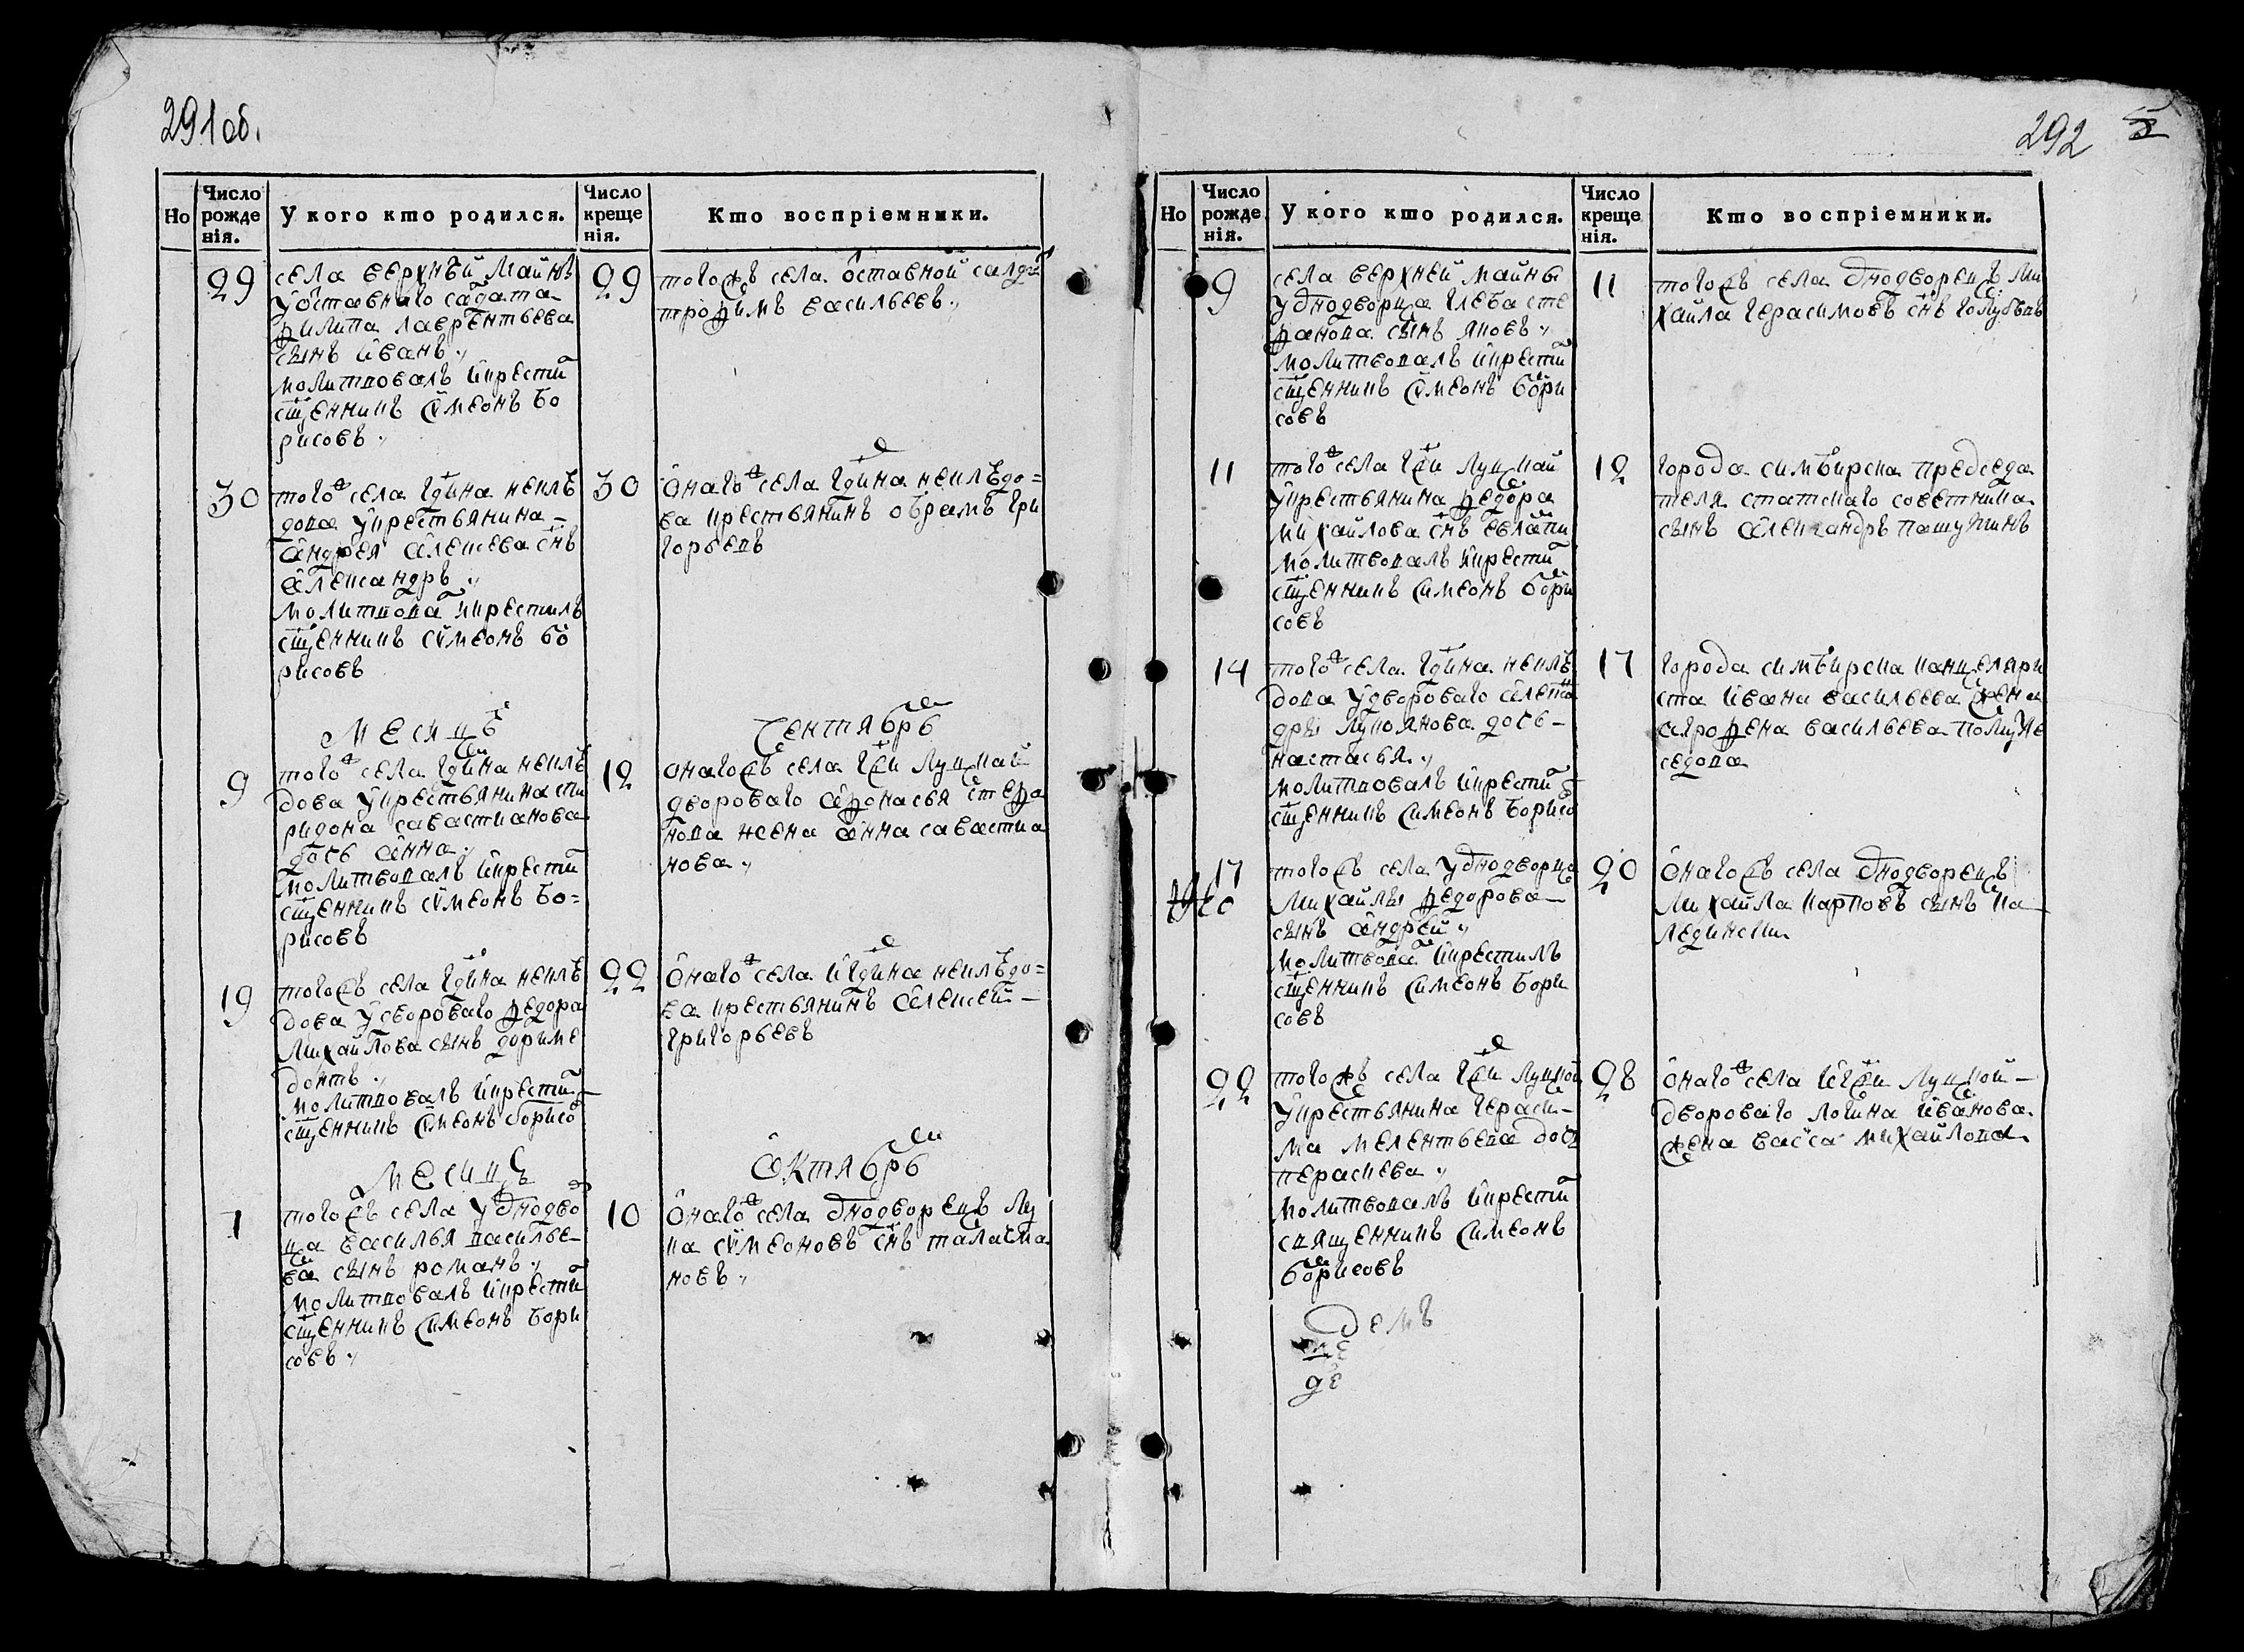 291 об.
Но
Число рожде нія.
У кого кто родился.
Число креще нія.
Кто воспріемники.
29
села верхнѣй майнѣ
уоставнаго салдата
филипа лаврентьева
сынъ иванъ
молитвовалъ икрести
сщенникъ сѵмеонъ бо
рисовъ
29
тогожъ села оставной салда
трофимъ васильевъ
30
того ж села гдина неклѣ
дова укрестьянина
андрея алексева снъ
александръ
молитвова икрестилъ
сщенникъ сѵмеонъ бо
рисовъ
30
онаго ж села гдина неклѣдо=
ва крестьянинъ обрамъ гри
горьевъ
месицъ сентябрь
9
того ж села гдина неклѣ
дова укрестьянина спи
ридона савастианова
дочь анна
молитвовалъ икрести
сщенникъ сѵмеонъ бо=
рисовъ
12
оногожъ села гжи луцкай
двороваго афонасья стефа
нова жена анна савастиа
нова
19
тогожъ села гдина неклѣ
дова удвороваго федора
михайлова сынъ дориме
донтъ
молитвовалъ икрести
сщенникъ сѵмеонъ борисо
22
онаго ж села игдина неклѣдо=
ва крестьянинъ алексей
григорьевъ
месицъ октябрь
7
тогожъ села уоднодво
ца василья василье
ва сынъ романъ
молитвовалъ икрести
сщенникъ симеонъ бори
совъ
10
онаго ж села однодворецъ лу
ка сѵмеоновъ снъ таласма
новъ
292
Но
Число рожде нія.
У кого кто родился.
Число креще нія.
Кто воспріемники.
9
села верхней майны
уоднодворца глеба сте
фанова сынъ яковъ
молитвовалъ икрести
сщенникъ сѵмеонъ бори
совъ
11
тогожъ села однодворецъ ми
хайла герасимовъ снъ голубевъ
11
того ж села гжи луцкай
укрестьянина федора
михайлова снъ евлати
молитвовалъ икрести
сщенникъ симеонъ бори
совъ
12
города симбирска председа
теля статскаго советника
сынъ александръ пашуткинъ
14
того ж села гдина неклѣ
дова удвороваго алекса
дры лукоянова дочь
настасья
молитвовалъ икрести
сщенникъ симеонъ борисо
17
города симбирска канцеляри
ста ивана васильева жена
афрофена васильева
седова
17
тогожъ села уоднодворца
михайлы федорова
сынъ андрей
молитвова икрестилъ
сщенникъ симеонъ бори
совъ
20
оногожъ села однодворецъ
михайла карповъ сынъ ка
ледински
22
тогожъ села гжи луцкой
укрестьянина гераси
ма мелентьева дочь
параскева
молитвовалъ икрести
священникъ симеонъ
борисовъ
28
онаго ж села игжи луцкой
двороваго логина иванова
жена васса михайлова
день
де